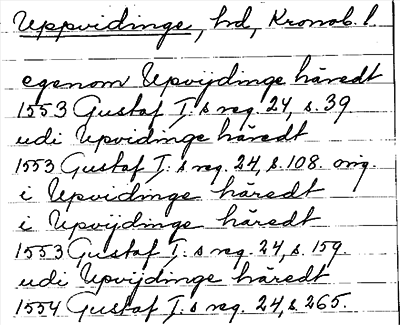 Uppvidinge, hd, Kronob. l.
egenom Upvijdinge häredt
1553 Gustaf I.s reg. 24, s. 39
udi Upvidinge häredt
1553 Gustaf I.s reg. 24, s. 108. orig.
i Upvidinge häredt
i Upvijdinge häredt
1553 Gustaf I. s reg. 24, s. 159.
udi Upvijdinge häredt
1554 Gustaf I. s reg. 24, s. 265.